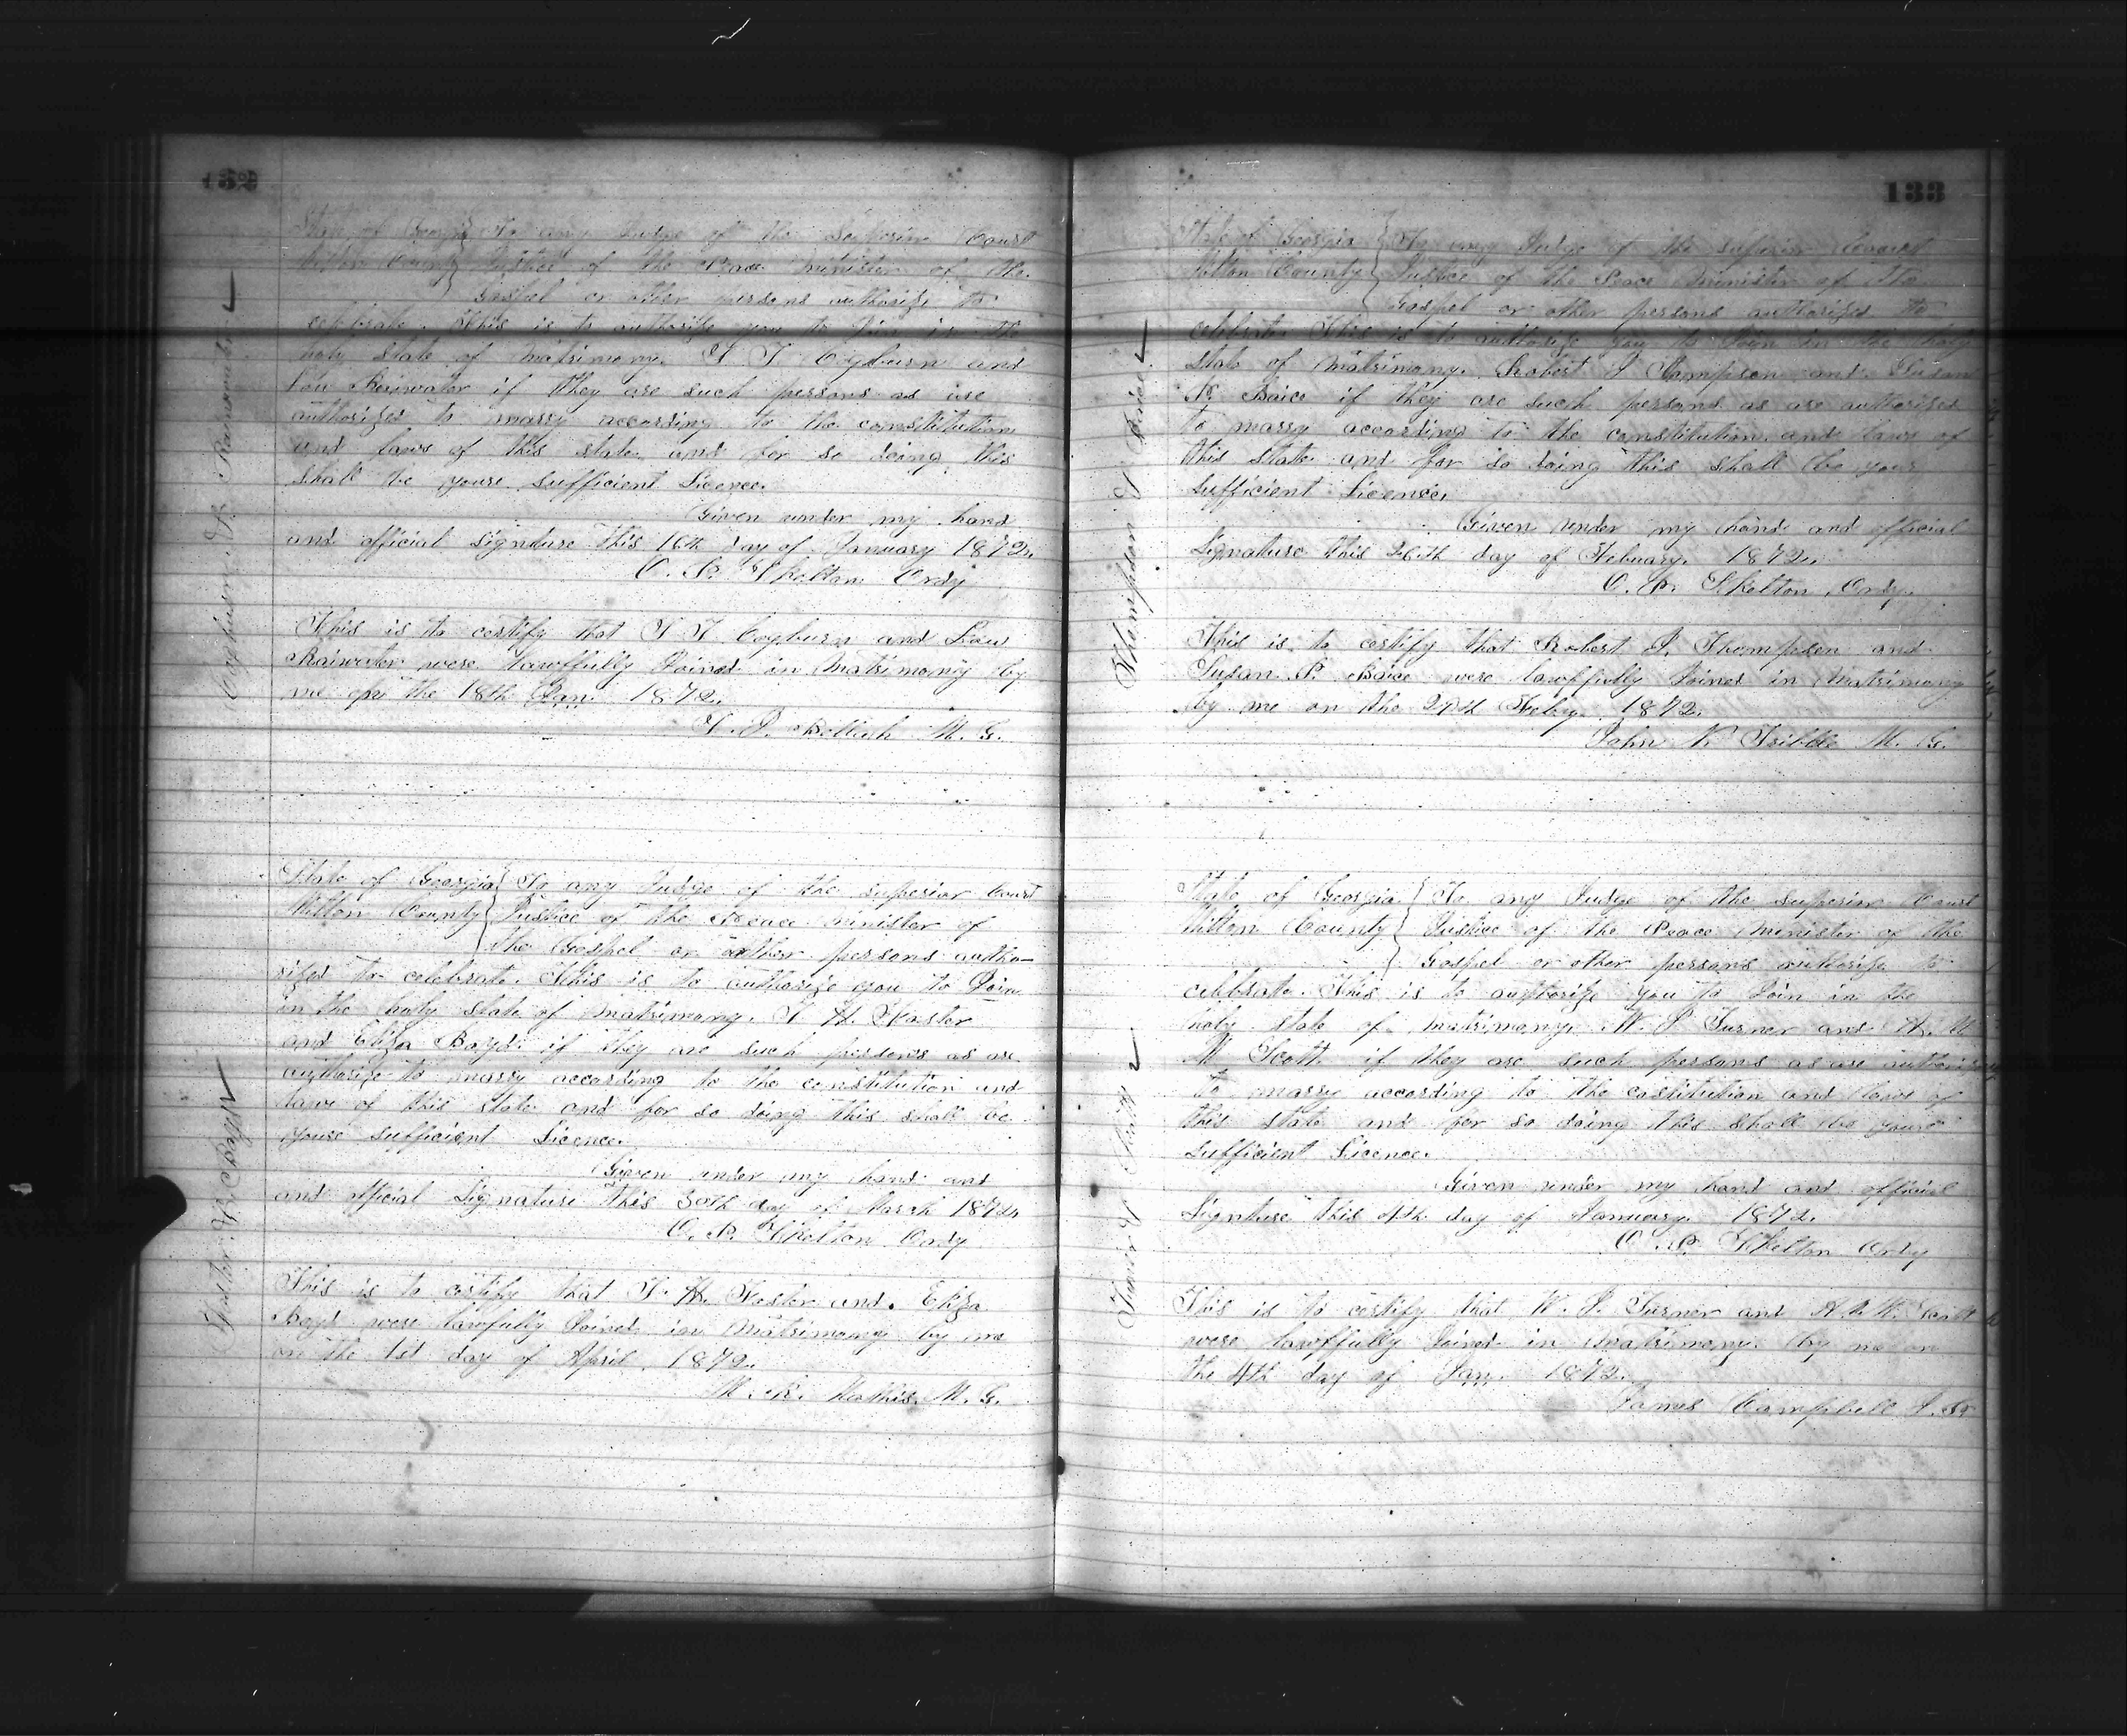 132
State of Georgia } To any Judge of the Superior Court
Milton County } Justice of the Peace minister of the
Gospel or other persons authorize to
celebrate. This is to authorize you to Join in the
holy state of matrimony. Cogburn and
Lou Rainwater if they are such persons as are
authorized to marry according to the constitution
and laws of this state and for so doing this
shall be youre sufficient Licence.
Given under my hand
and official signature this 16th day of January 1872.
O. P. Skelton Ordy
This is to certify that Cogburn and Lou
Rainwater were lawffully Joined in Matrimony by
me on the 18th Jan. 1872.
M. G.
Cogburn & Rainwater
State of Georgia } To any Judge of the superior Court
Milton County } Justice of the Peace minister of
the Gospel or other persons autho-
rized to celebrate. This is to authorize you to Join
in the holy state of matrimony. H. Foster
and Eliza Boyd if they are such persons as are
authorize to marry according to the constitution and
laws of this state and for so doing this shall be
youre sufficient Licence.
Given under my hand and
and official Signature this 30th day of March 1872.
O. P. Skelton Ordy
This is to certify that T. H. Foster and Eliza
Boyd were lawfully Joined in Matrimony by me
on the 1st day of April. 1872.
M. G.
Foster & Boyd
133
State of Georgia } To any Judge of the superior Court
Milton County } Justice of the Peace minister of the
Gospel or other persons authorized to
celebrate This is to authorize you to Join in the holy
state of matrimony. Robert J Thompson and Susan
if they are such persons as are authorized
to marry according to the constitution and laws of
this state and for so doing this shall be your
sufficient Licence,
Given under my hand and official
Signature this 26th day of Febuary. 1872.
O. P. Skelton Ordy.
This is to certify that Robert J. Thompson and
Susan P. were lawffully Joined in Matrimony
by me on the Feby. 1872.
John Tribble M. G.
Thompson &
State of Georgia } To any Judge of the superior Court
Milton County } Justice of the Peace minister of the
Gospel or other persons authorize to
celebrate. This is to authorize you to Join in the
holy state of matrimony. W. J Turner and
Scott if they are such persons as are
to marry according to the costitution and laws of
this state and for so doing this shall be youre
sufficient Licence.
Given under my hand and official
Signture this 4th day of January. 1872.
O. P. Skelton Ordy
This is to certify that W. J. Turner and Scott
were lawffully Joined in matrimony. by me on
the 4th day of Jan. 1872.
James Campbell
Turner & Scott